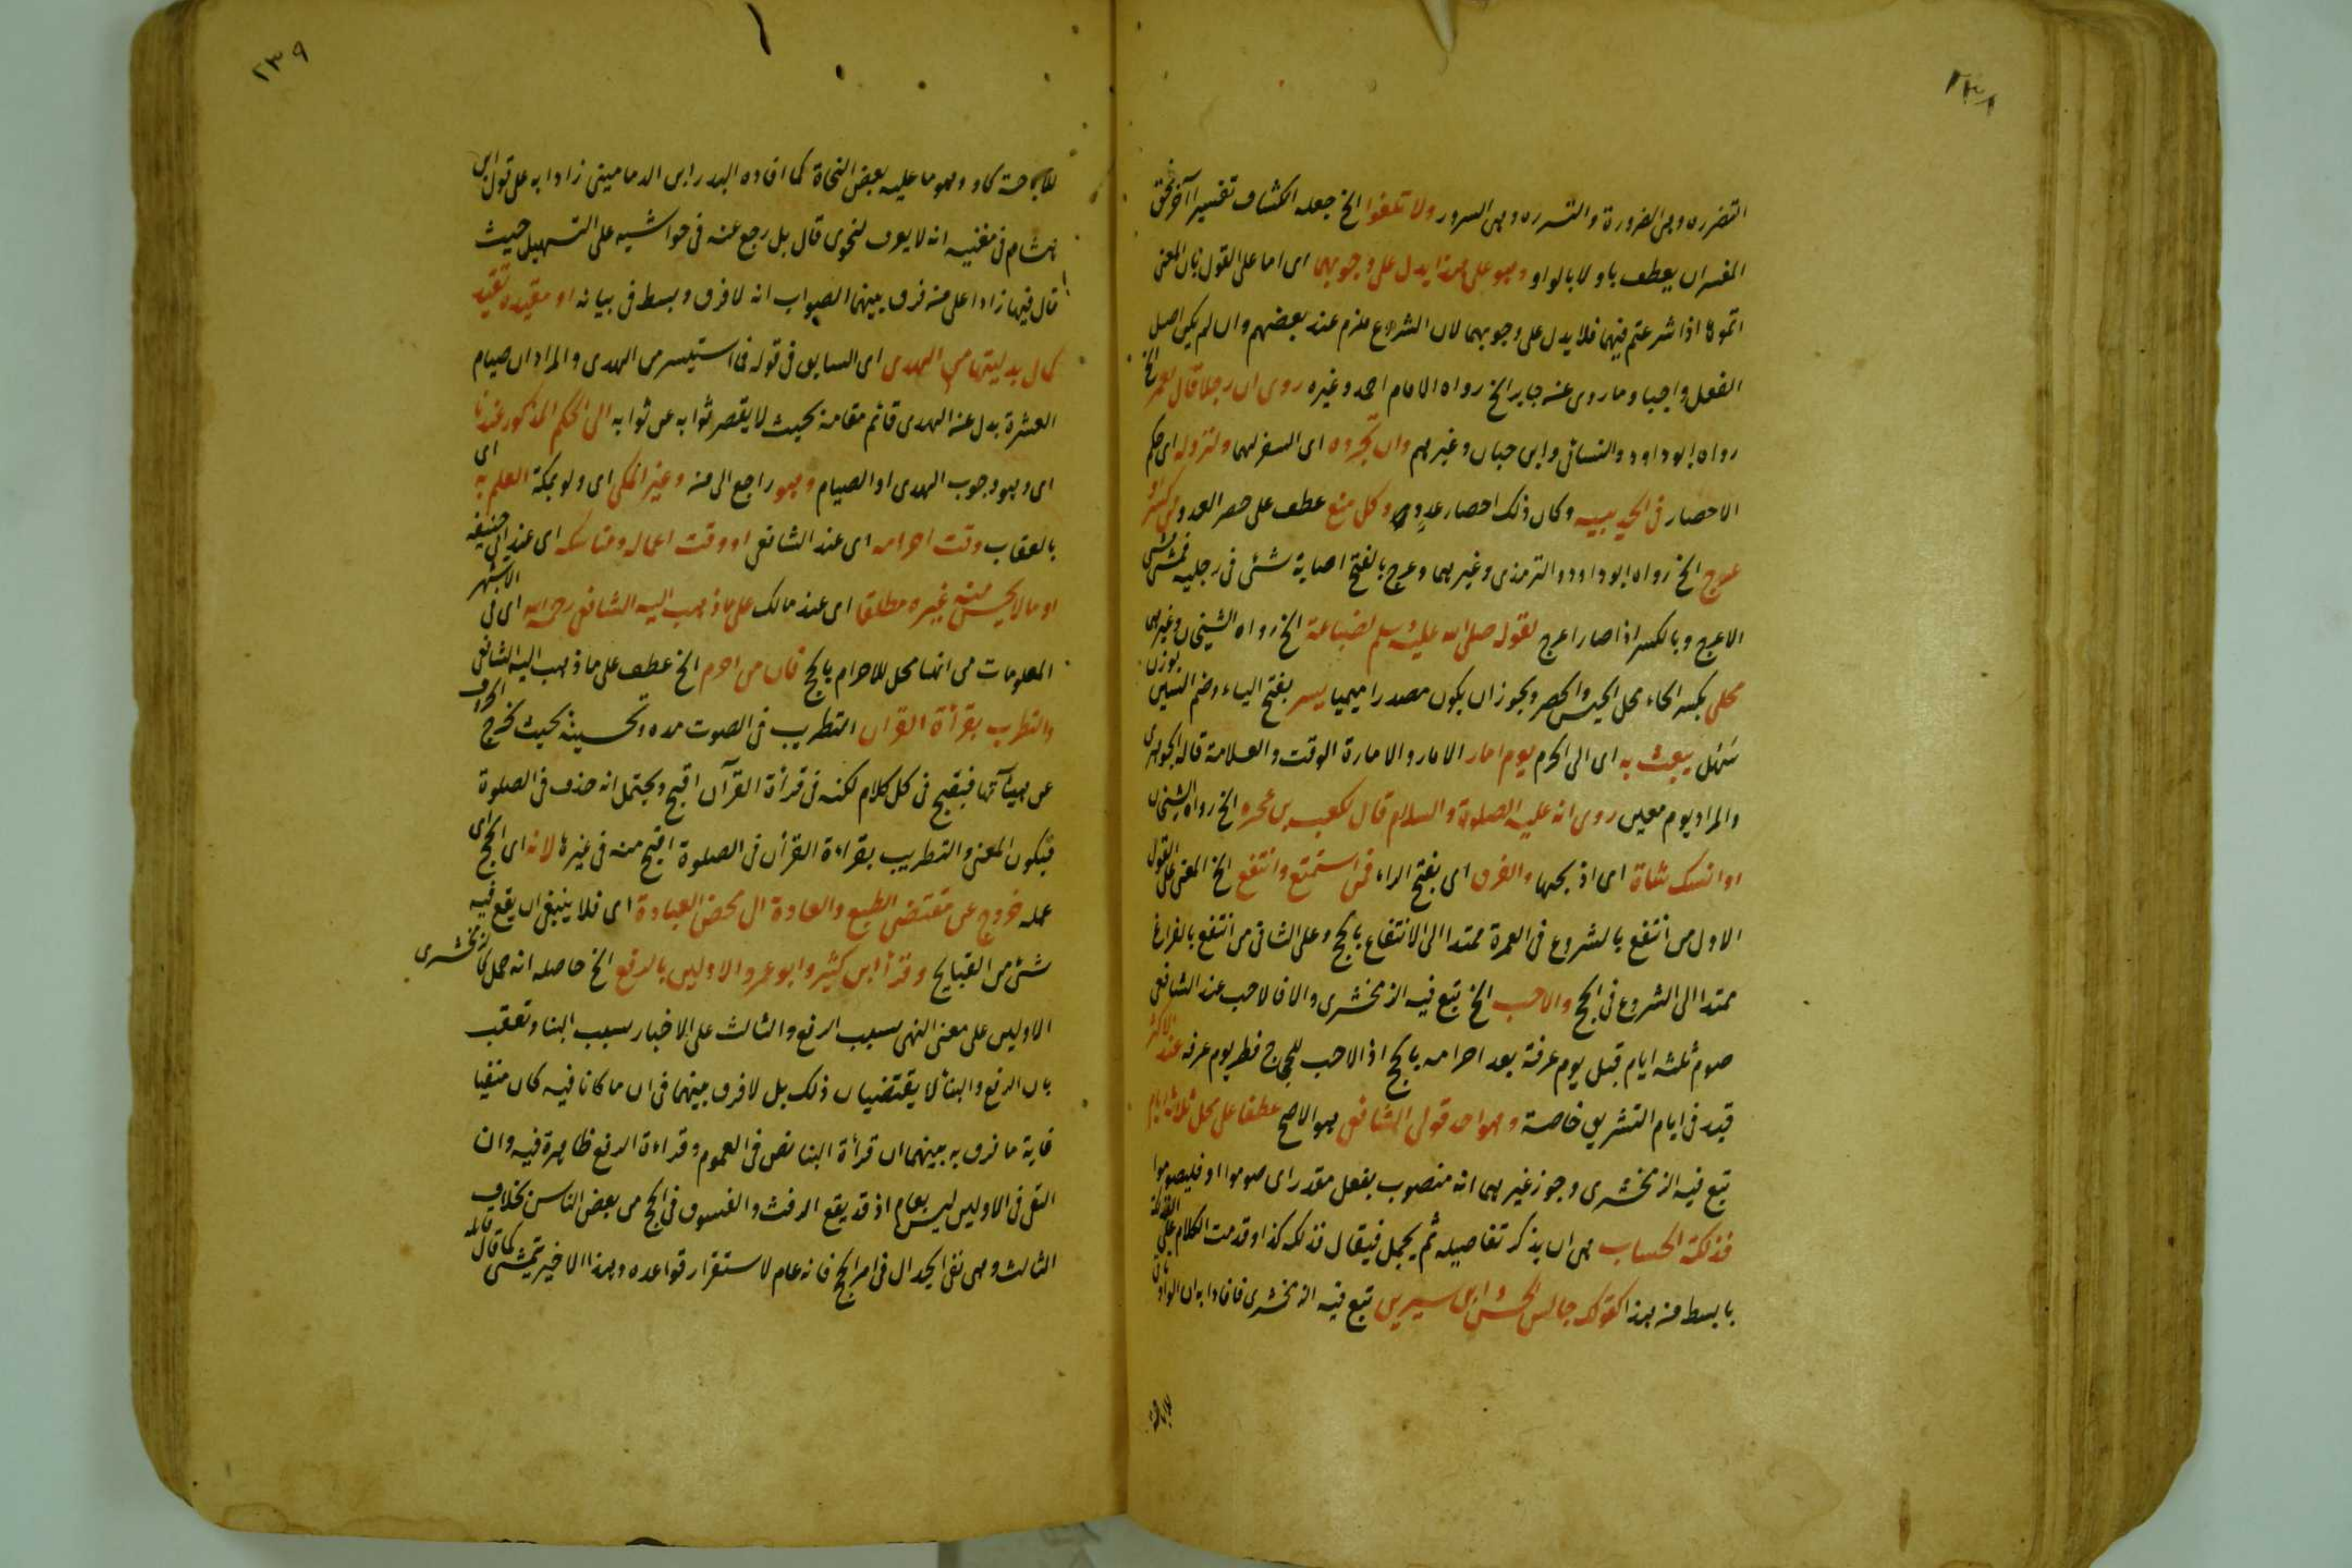 ٢٣٨
التضرره وهى الضرورة والتسرره وهى السرور ولا تلغوا الخ جعله الكشاف تفسيرا آخر فحق
المفسران يعطف باو لا بالواو وهو على هذا يدل على وجوبهما اى اما على القول بان المعنى
اتموها اذا شرعتم فيهما فلا يدل على وجوبهما لان الشروع ملزم عند بعضهم وان لم يكن اصل
الفعل واجبا وما روى عنه جابر الخ رواه الامام احمد وغيره روى ان رجلا قال لعمر الخ
رواه ابو داود والنسائى وابن حبان وغيرهم وان تجروه اى السفر لهما ولنزوله اى حكم
الاحصار فى الحديبية وكان ذلك احصار عدو وكل منع عطف على حصر العدو من كسر او
عرج الخ رواه ابو داود والترمذى وغيرهما وعرج بالفتح اصابة شئ فى رجليه فمشى مشى
الاعرج وبالكسر اذا صار اعرج لقوله صلى الله عليه وسلم لضباعة الخ رواه الشيخان وغيرهما
محلى بكسر الحاء محل الحبس والحصر ويجوز ان يكون مصدرا ميميا يسر بفتح الياء وضم السين بوزن
يبعث به اى الى الحرم يوم امار الامار والامارة الوقت والعلامة قاله الجوهرى
والمراد يوم معين روى انه عليه الصلوة والسلام قال لكعب بن عجره الخ رواه الشيخان
اوانسك شاة اى اذبحها والفرق اى بفتح الراء فمن استمتع وانتفع الخ المعنى على القول
الاول من انتفع بالشروع فى العمرة ممتدا الى الانتفاع بالحج وعلى الثانى من انتفع بالفراغ
ممتدا الى الشروع فى الحج والاحب الخ تبع فيه الزمخشرى والا فالاحب عند الشافعى
صوم ثلثه ايام قبل يوم عرفة بعد احرامه بالحج اذ الاحب للحجاج فطر يوم عرفه عند الاكثر
قيد فى ايام التشريق خاصة وهو احد قولى الشافعى هو الاصح عطفا على محل ثلاثة ايام
تبع فيه الزمخشرى وجوز غيرهما انه منصوب بفعل مقدر اى صوموا او فليصوموا
فذلكة الحساب هى ان يذكر تفاصيله ثم يجمل فيقال فذلكه كذا وقدمت الكلام على الفذلكة
بابسط من هذا كقولك جالس الحسن وابن سيرين تبع فيه الزمخشرى فافادا به ان الواو تاتى
للاباحة
٢٣٩
للاباحة كاو وهو ما عليه بعض النحاة كما افاده البدر ابن الدمامينى زادا به على قول ابن
هشام فى مغنيه انه لا يعرف لنحوى قال بل رجع عنه فى حواشيه على التسهيل حيث
قال فيها زادا على منه فرق بينهما الصواب انه لا فرق وبسط فى بيانه او مقيده تقيد
كمال بدليتها من الهدى اى السابق فى قوله فما استيسر من الهدى والمراد ان صيام
العشرة بدل عنه الهدى قائم مقامه بحيث لا يقصر ثوابه عن ثوابه الى الحكم المذكور عندنا
اى وهو وجوب الهدى او الصيام وهو راجع الى منه وغير المكى اى ولو بمكة العلم به اى
بالعقاب وقت احرامه اى عند الشافعى او وقت اعماله ومناسكه اى عند ابى حنيفه
او مالا يحسن منه غيره مطلقا اى عند مالك على ما ذهب اليه الشافعى رحمه الله اى فى الاشهر
المعلومات من انها محل للاحرام بالحج فان من احرم الخ عطف على ما ذهب اليه الشافعى
والتطريب بقرأة القران التطريب فى الصوت مده وتحسينه بحيث تخرج الحروف
عن هيئآتها فيقبح فى كل كلام لكنه فى قرأة القرآن اقبح ويحتمل انه حذف فى الصلوة
فيكون المعنى والتطريب بقراءة القرأن فى الصلوة اقبح منه فى غيرها لانه اى الحج اى
عمله خروج عن مقتضى الطبع والعادة الى محض العبادة اى فلا ينبغى ان يقع فيه
شئ من القبايح وقرأ ابن كثير وابو عمرو الاولين بالرفع الخ حاصله انه حمل كالزمخشرى
الاولين على معنى النهى بسبب الرفع والثالث على الاخبار بسبب البنا وتعقب
بان الرفع والبنأ لا يقتضيان ذلك بل لا فرق بينهما فى ان ما كانا فيه كان منفيا
غاية ما فرق به بينهما ان قرأة البنا نص فى العموم وقراءة الرفع ظاهرة فيه وان
النفى فى الاولين ليس بعام اذ قد يقع الرفث والفسوق فى الحج من بعض الناس بخلاف
الثالث وهى نفى الجدال فى امر الحج فانه عام لاستقرار قواعده وهذا الاخير يتمشى كما قاله